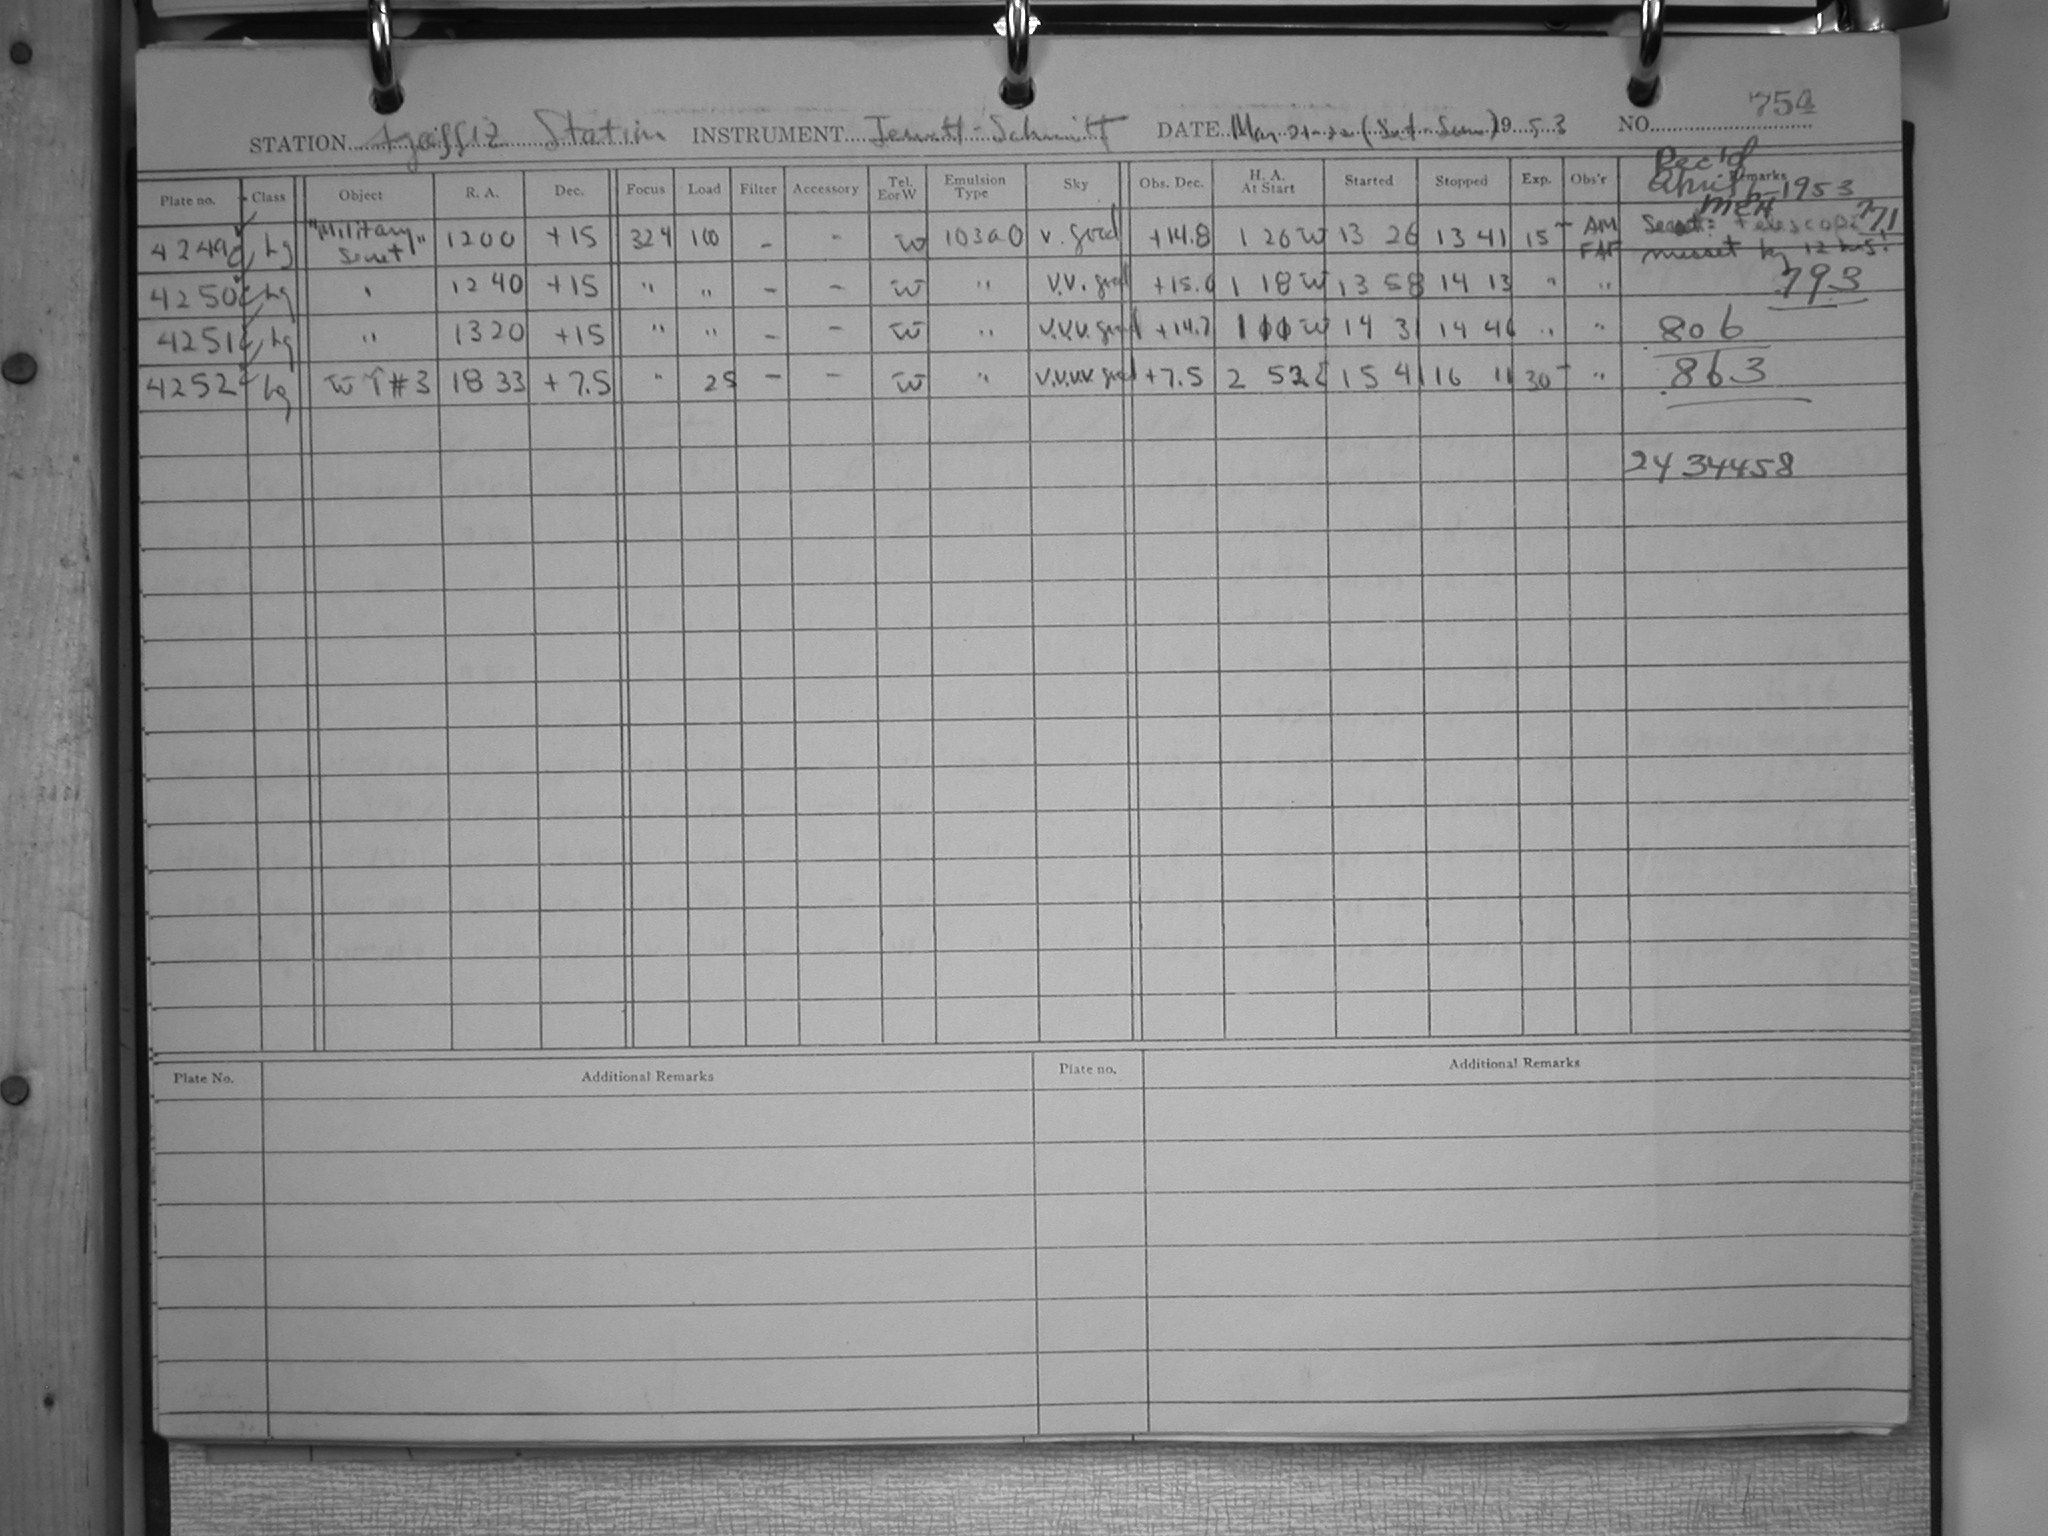 754
STATION Agassiz Station INSTRUMENT Jewett-Schmidt DATE Mar. 21-22 (Sat-Sun) 1953 NO.
Rec'd
April 6-1953
MEH
Plate no. Class Object R. A. Dec. Focus Load Filter Accessory Tel. E or W Emulsion Type Sky Obs. Dec. H. A. At Start Started Stopped Exp. Obs'r Remarks
4249 hg "Military Secret" 1200 +15 324 100 - - W 103aO v. good +14.8 1 26 W 13 26 13 41 15 AM FAF Secret: telescope misset by 12 hrs! 771
4250 hg " 1240 +15 " " - - W " v.v. good +15.0 1 18 W 13 58 14 13 " " 793
4251 hg " 1320 +15 " " - - W " v.v.v. good +14.7 1 10 W 14 31 14 46 " " 806
4252 hg #3 18 33 +7.5 " 25 - - W " v.v.v.v. good +7.5 2 52 15 41 16 11 30 " 863
2434458
Plate No. Additional Remarks Plate no. Additional Remarks